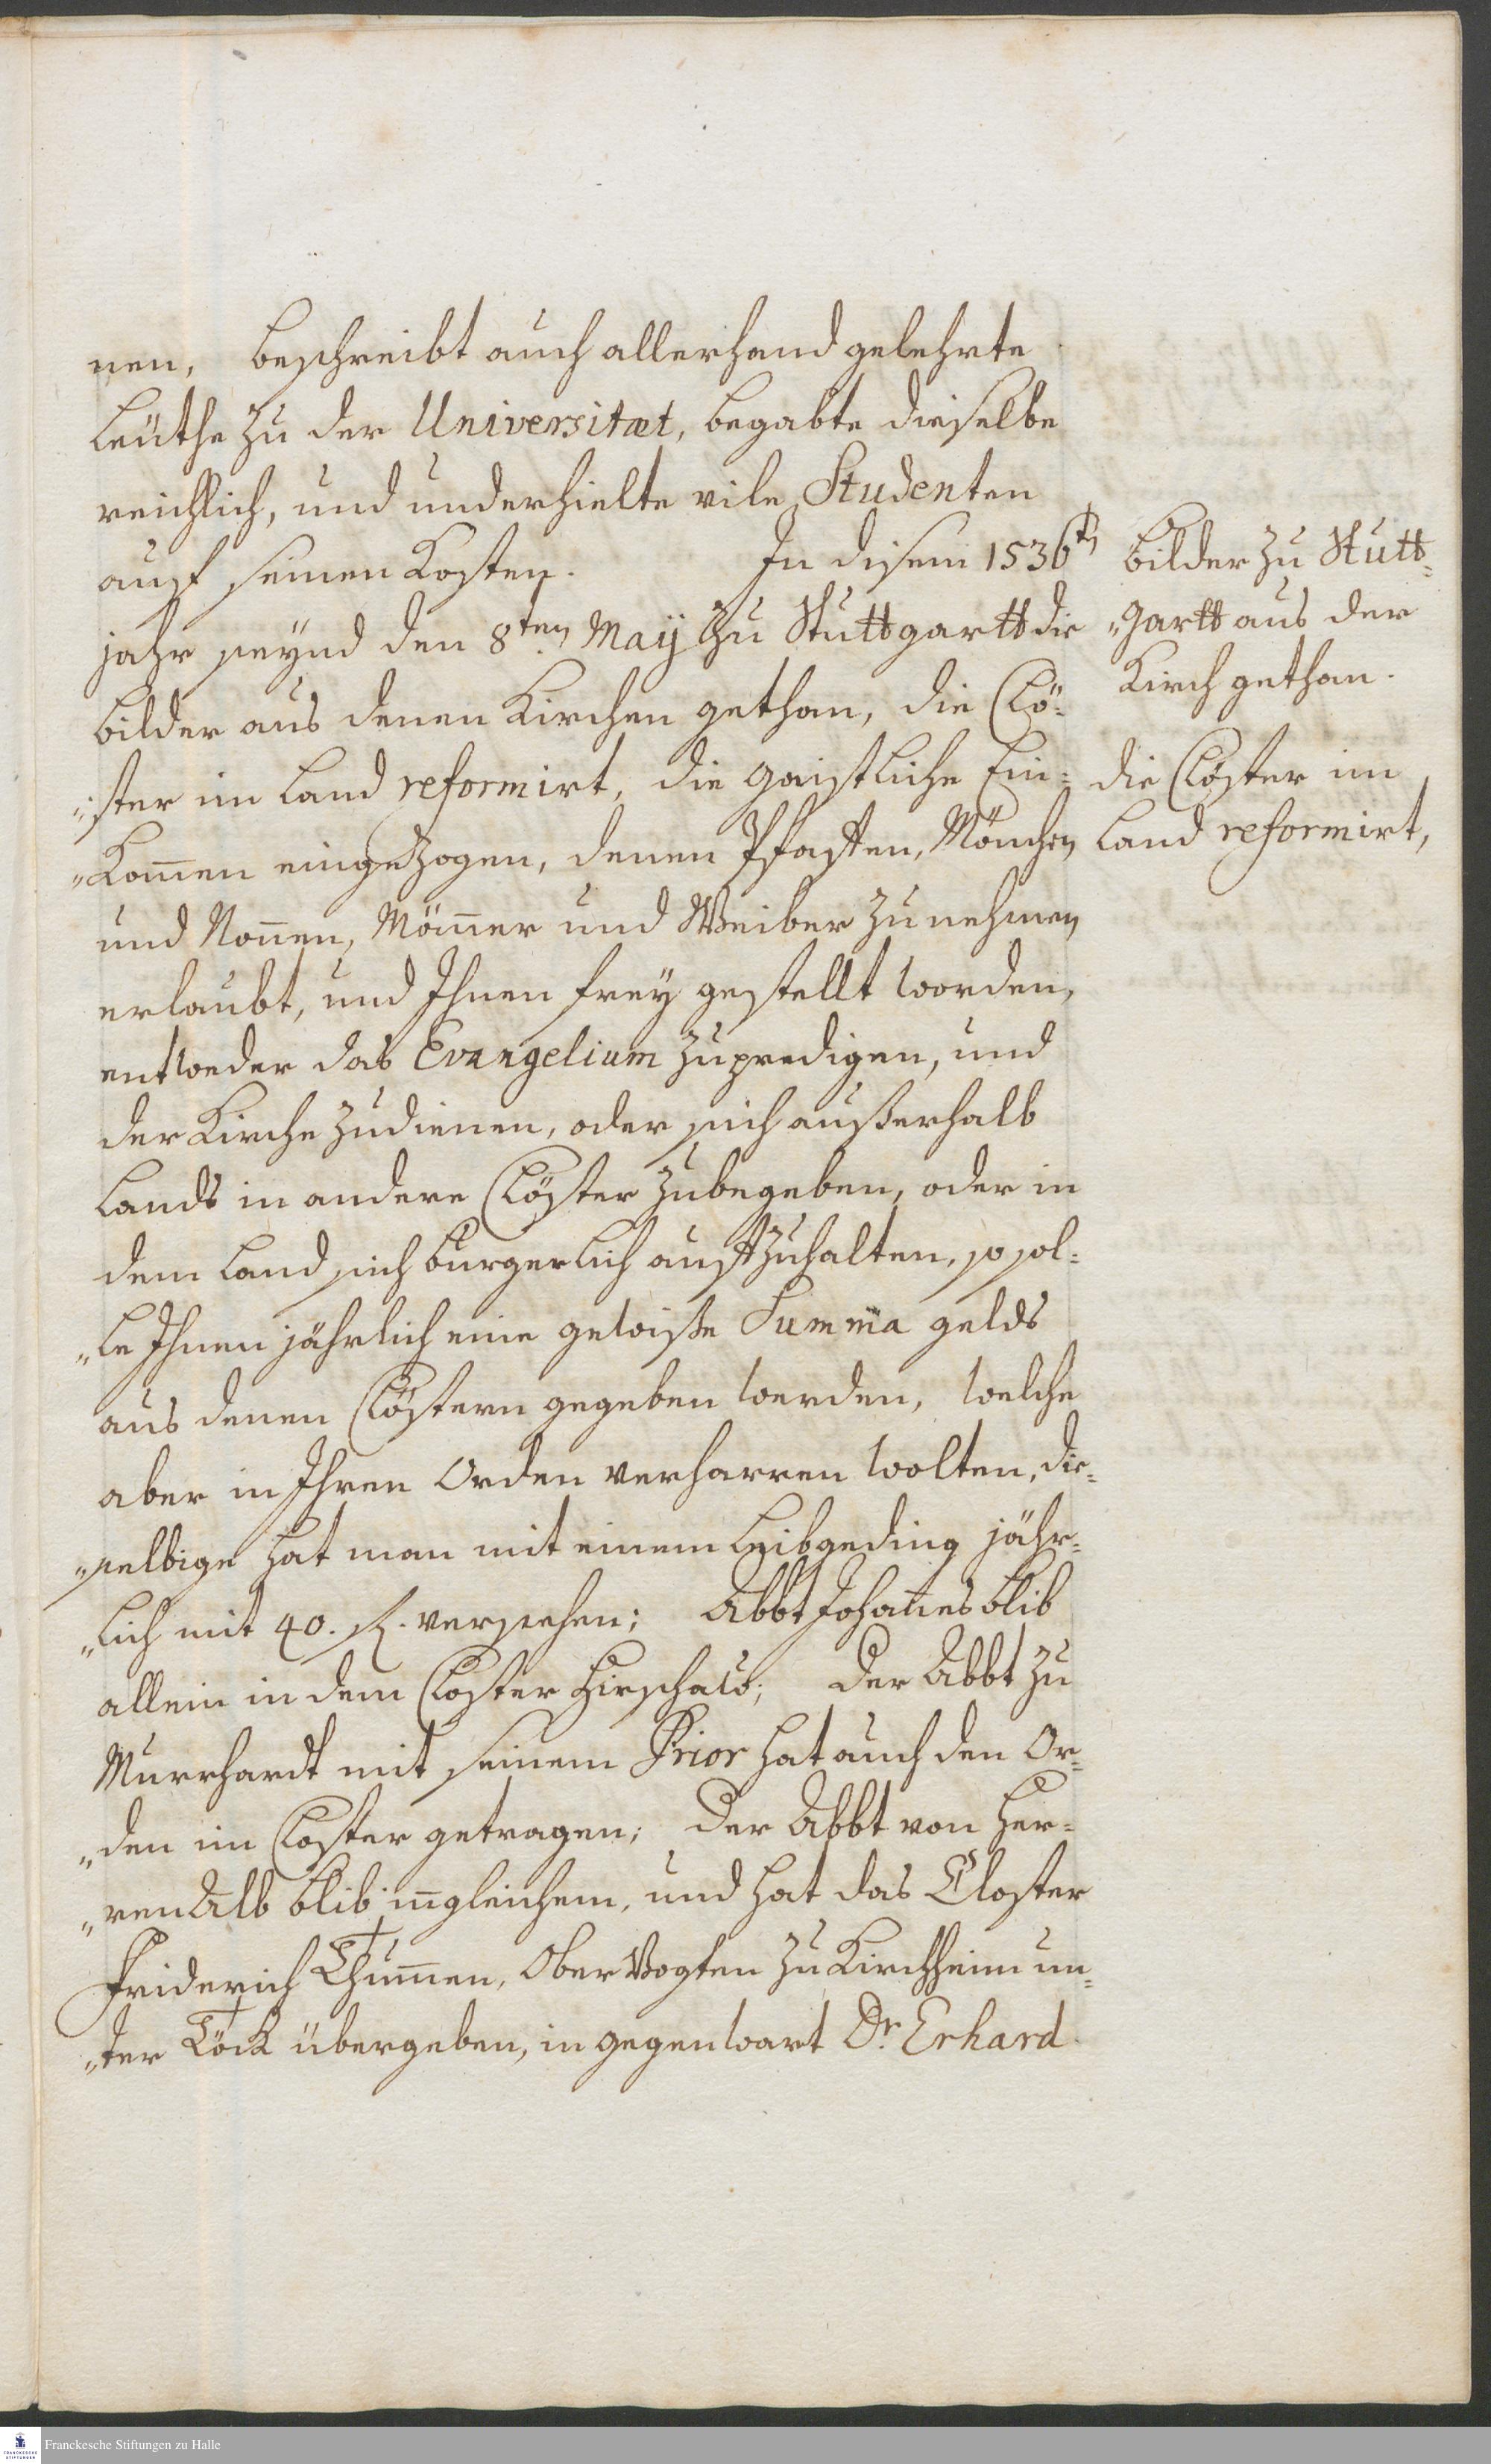 nen, beschreibt auch allerhand gelehrte
Leüthe zu der Universitæt, begabte dieselbe
reichlich, und underhielte vile Studenten
auf seinen Kosten. In disem 1536ten
jahr seynd den 8ten Maÿ zu Stuttgartt die
bilder aus denen Kirchen gethan, die Clö-
„ster im Land reformirt, die Gaistliche Ein-
„kom̄en eingezogen, denen Pfaffen, Mönchen
und Non̄en, Män̄er und Weiber zu nehmen
erlaubt, und Ihnen freÿ gestellt worden,
entweder das Evangelium zu predigen, und
der Kirche zudienen, oder sich außerhalb
Lands in andere Clöster zubegeben, oder in
dem Land sich burgerlich auffzuhalten, so sol-
„le Ihnen jährlich eine gewiße Sum̄a gelds
aus denen Clöstern gegeben werden, welche
aber in Ihren Orden verharren wolten, die-
„selbige hat man mit einem Leibgeding jähr-
„lich mit 40. fl. versehen; Abbt Johan̄es blib
allein in dem Closter Hirschaw; der Abbt zu
Murrhardt mit seinem Prior hat auch den Or-
„den im Closter getragen; der Abbt von Her-
„ren Alb blib in̄gleichem, und hat das Closter
Friderich Thum̄en, Ober Vogten zu Kirchheim un-
„ter Töck übergeben, in gegenwart Dr. Erhard
bilder zu Stutt-
„gartt aus der
Kirch gethan.
die Clöster im
Land reformirt,
Franckesche Stiftungen zu Halle